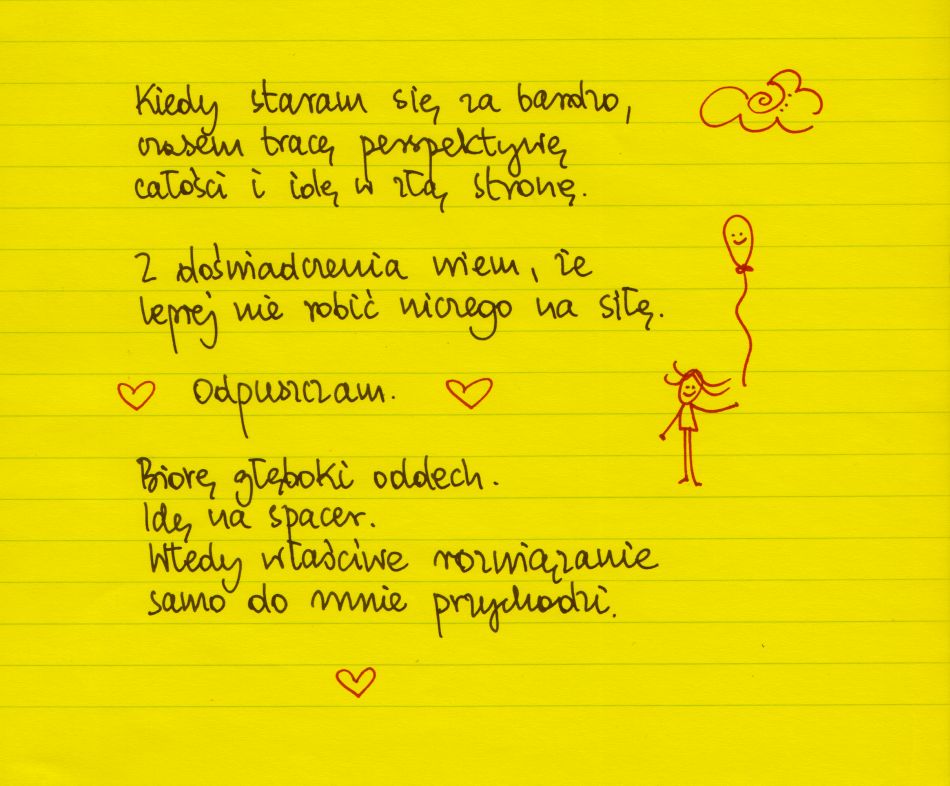 Kiedy staram się za bardzo,
czasem tracę perspektywę
całości i idę w złą stronę.
Z doświadczenia wiem, że
lepiej nie robić niczego na siłę.
Odpuszczam.
Biorę głęboki oddech.
Idę na spacer.
Wtedy właściwe rozwiązanie
samo do mnie przychodzi.